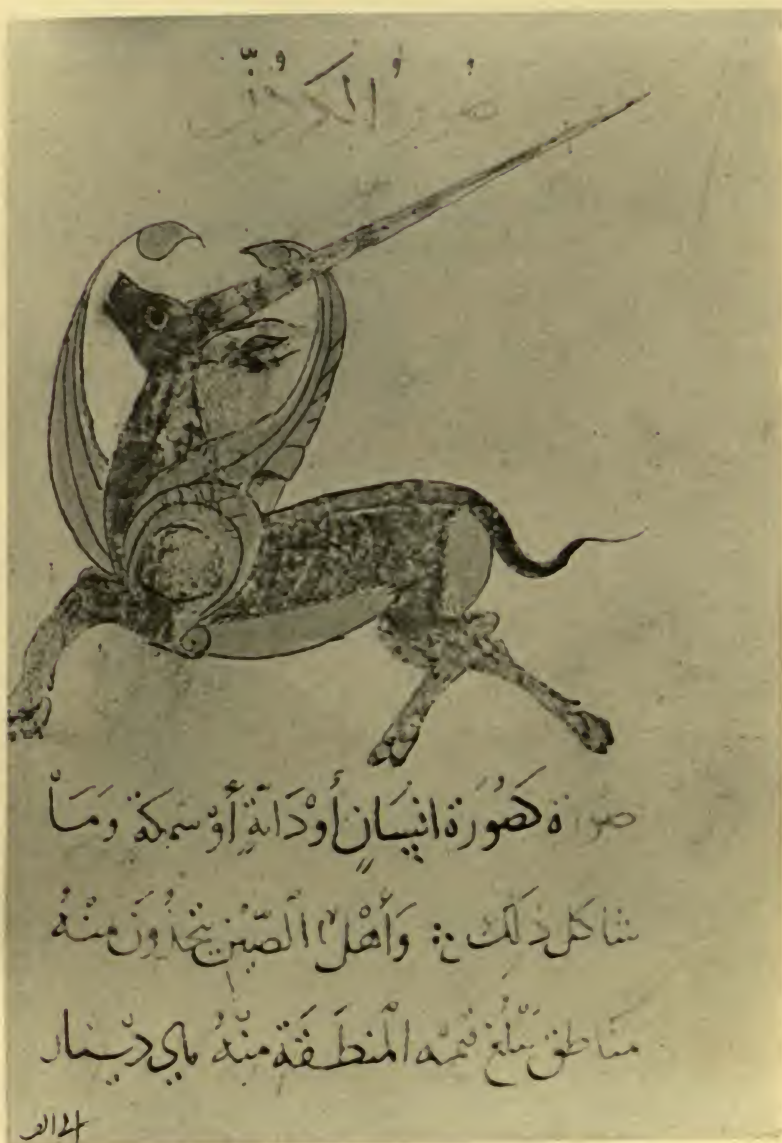 صورة الكركدن
صورة كَصُورَة انسَانٍ أَوْ دَابَّةٍ أَوْ سَمَكَةٍ وَمَا
شاكل ذلك وَأَهْلُ الصِّين يتخذُونَ مِنْهُ
مناطق تَبْلُغ قيمة المنطَقَةِ مِنْهُ مِاى دينار
الى الف